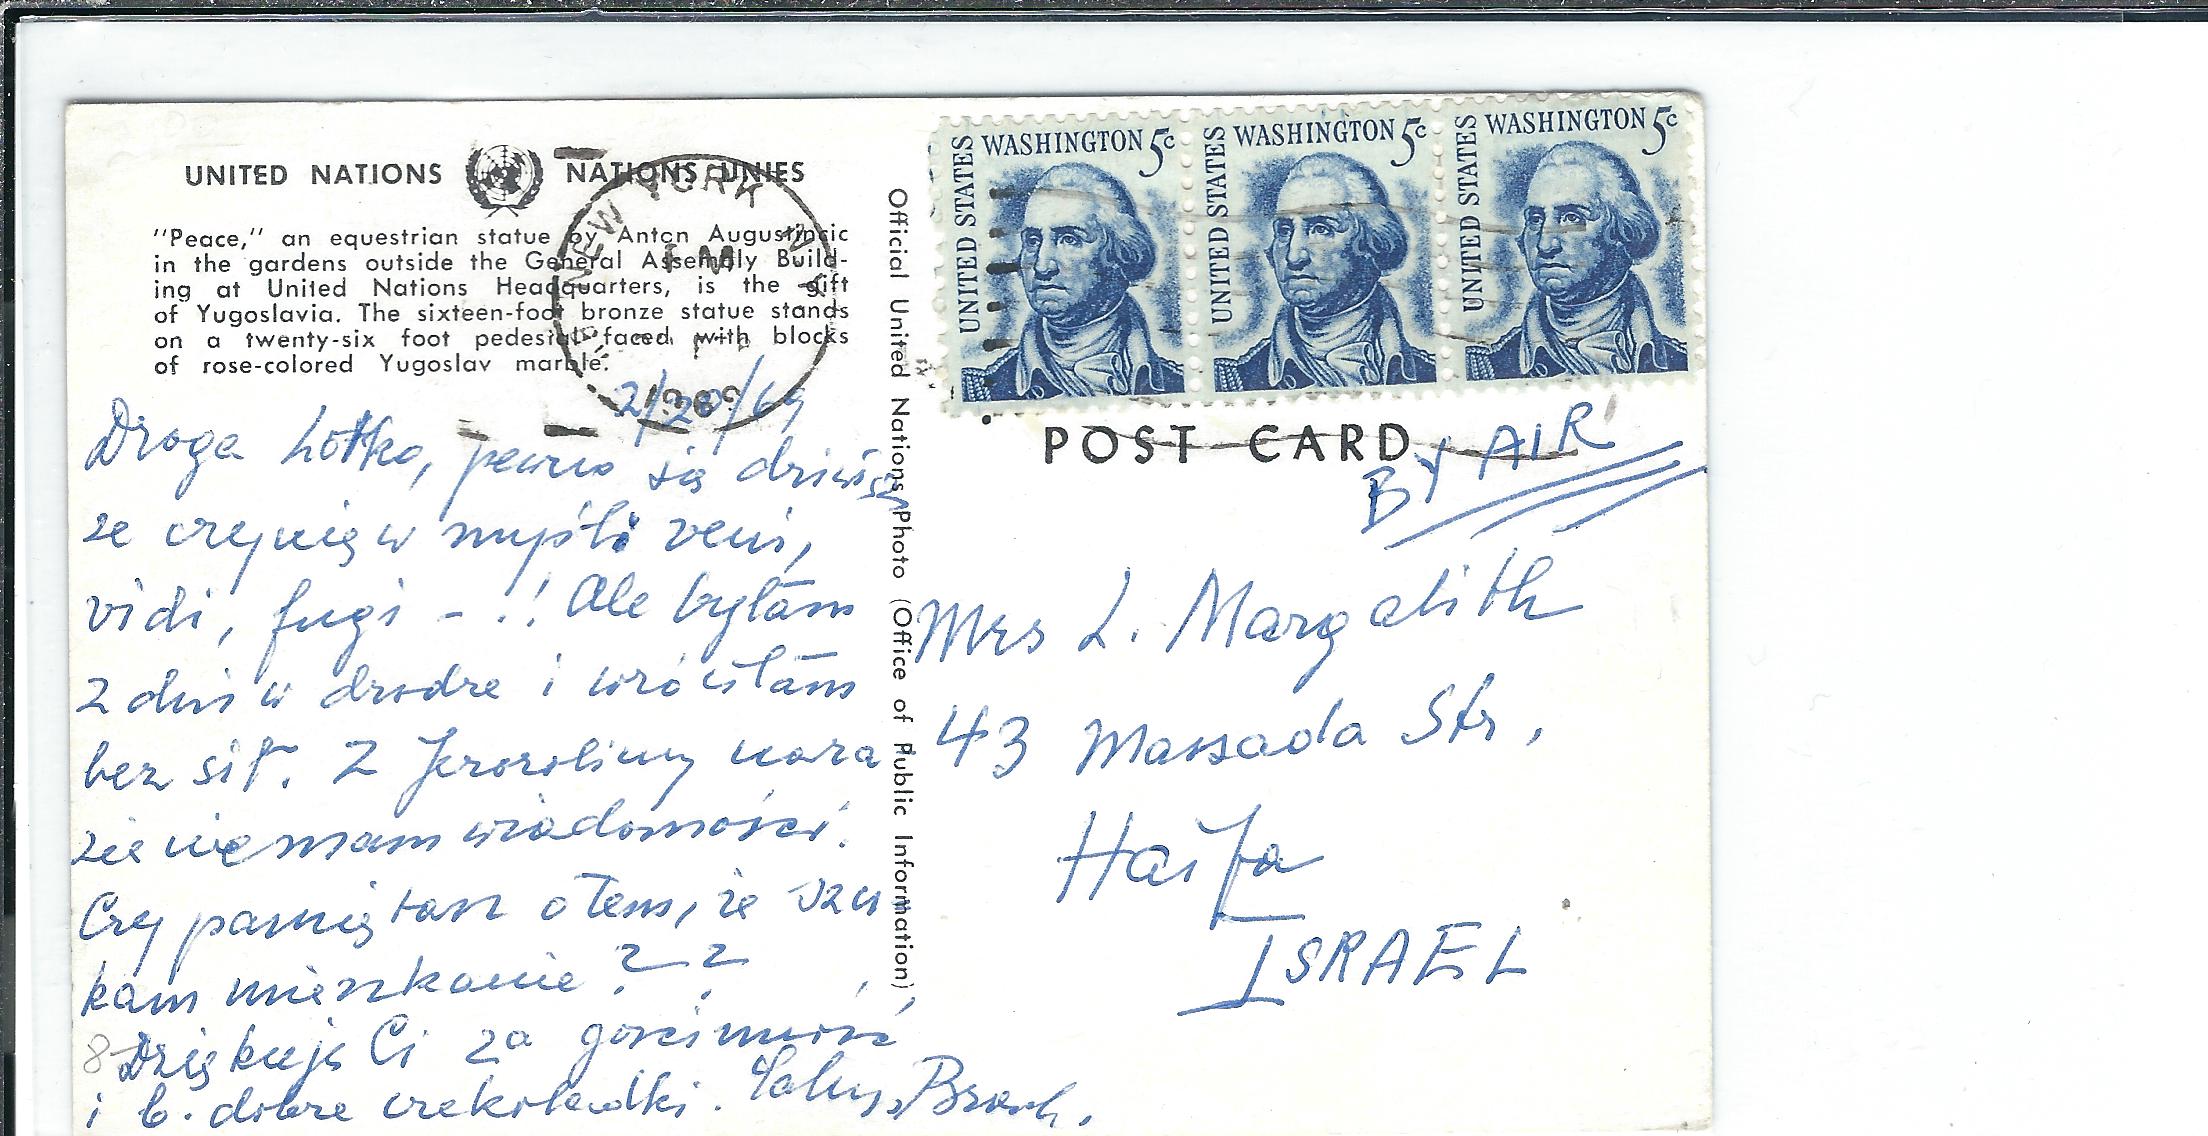 UNITED NATIONS NATIONS UNIES
"Peace," an equestrian statue by Anton Augustincic
in the gardens outside the General Assembly Build-
ing at United Nations Headquarters, is the gift
of Yugoslavia. The sixteen-foot bronze statue stands
on a twenty-six foot pedestal faced with blocks
of rose-colored Yugoslav marble.
NEW YORK, N.Y.
2/20/69
Droga Lotko, pewno się dziwisz
ze czynię w myśli veni,
vidi, fugi - .! Ale byłam
2 dni w drodze i wróciłam
bez sił. Z Jerozolimy nara
zie nie mam wiadomości.
Czy pamiętasz o tem, że szu
kam mieszkanie ? ?
Dziękuję Ci za gościnność
i b. dobre czekoladki.
Official United Nations Photo (Office of Public Information)
UNITED STATES WASHINGTON 5c
UNITED STATES WASHINGTON 5c
UNITED STATES WASHINGTON 5c
POST CARD
BY AIR
Mrs L. Margalith
43 Massada Str,
Haifa
ISRAEL